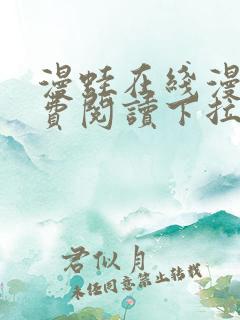 漫蛙在线漫
费阅读下拉
君似月
未经同意禁止转载